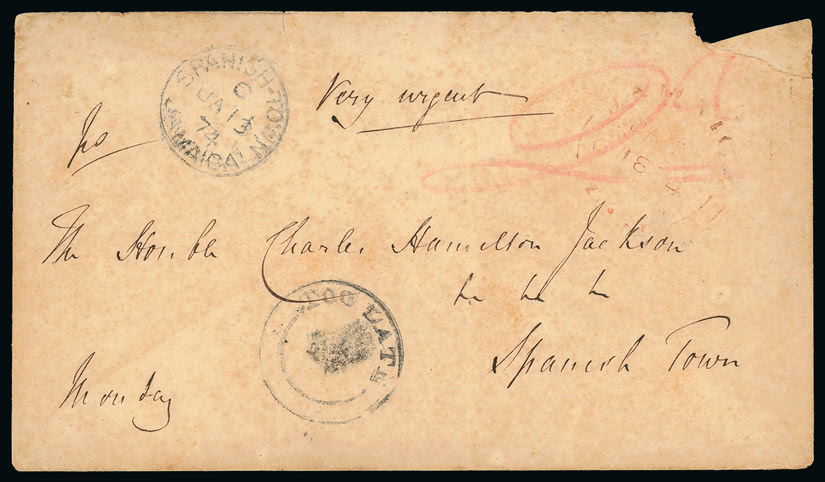 SPANISH-TOWN
JAMAICA
C
JA 13
74
Very urgent
The Honble Charles Hamilton Jackson
Spanish Town
TOO LATE
Monday